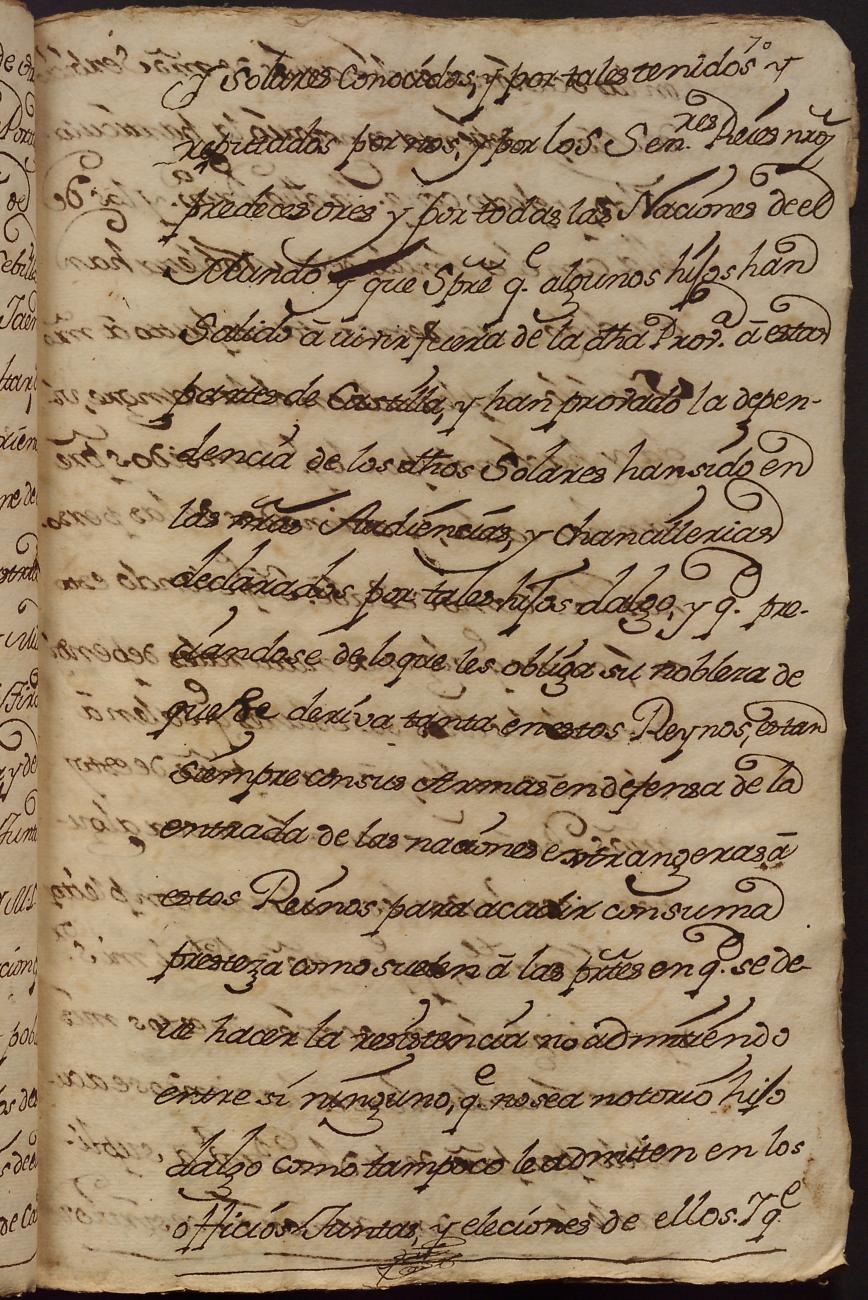 7º
y Solares conocidos, y por tales tenidos y
reputados por nos, y por los Sen.res Reies nros
predecesores y por todas las Naciones de el
Mundo y que Spre q.e algunos hijos han
Salido à vivir fuera de la dha Prov.a à estas
partes de Castilla, y han provado la depen-
dencia de los dhos Solares han sido en
las nras Audiencias, y chancillerias
declarados por tales hijos dalgo, y q.e pre-
ciandose de lo que les obliga su nobleza de
que se deriva tanta en estos Reynos, estan
siempre con sus Armas en defensa de la
entrada de las naciones extrangeras à
estos Reinos para acudir con suma
presteza como suelen à las prtes en q.e se de-
ve hacer la resistencia no admitiendo
entre si ninguno, q.e no sea notorio hijo
dalgo como tampoco le admiten en los
officios Juntas, y eleciones de ellos. Y q.e